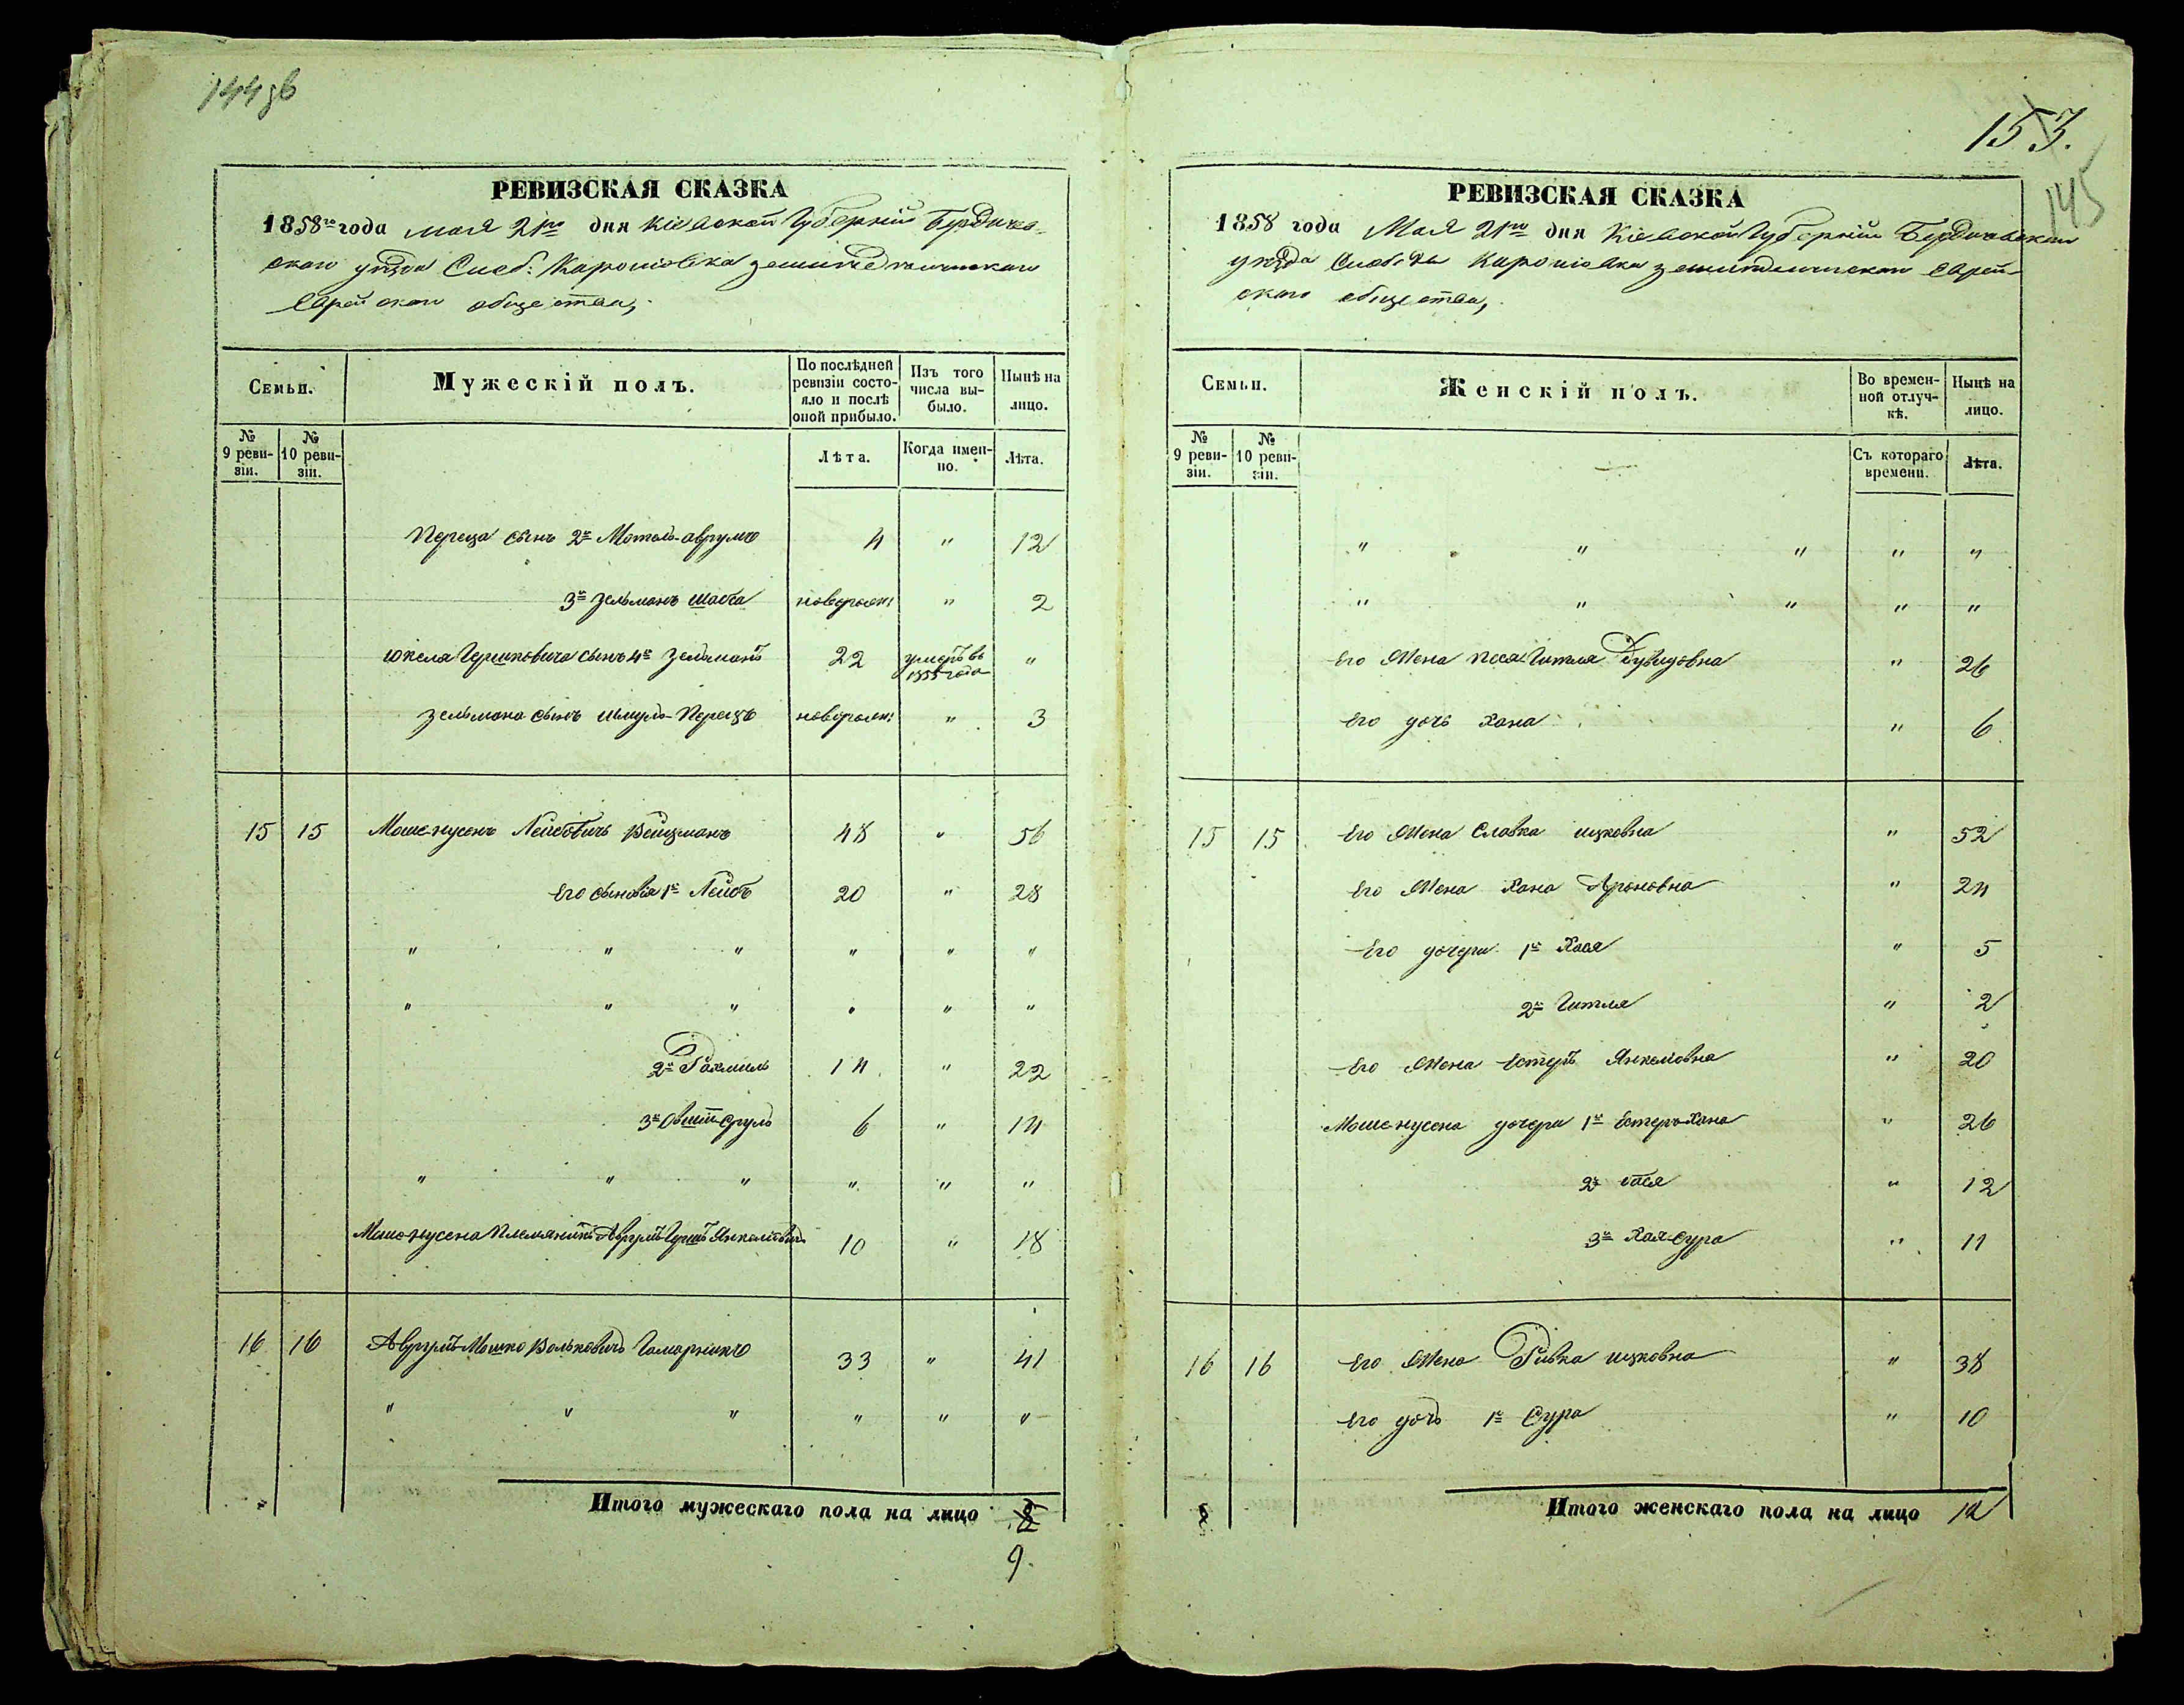 144зв
РЕВИЗСКАЯ СКАЗКА
1858го года мая 21го дня Кіевской Губерніи Бердичев-
скаго уезда Слоб: Каролиовка земледельческаго
Еврейскаго общества,
Семьи.
Мужескій полъ.
По послѣдней ревизіи состояло и послѣ оной прибыло.
Изъ того числа выбыло.
Нынѣ на лицо.
№ 9 ревизіи.
№ 10 ревизіи.
Лѣта.
Когда именно.
Лѣта.
Переца сынъ 2й Мотель-аврумъ 4 " 12
3й Зельманъ шабса новорожн: " 2
Юкеля Гершковича сынъ 4й Зельманъ 22 умеръ въ 1855 года "
Зельмана сынъ Шмуль-Перецъ новорожн: " 3
15 15 Моше-нусенъ Лейбовичъ Вейцманъ 48 " 56
Его сыновья 1й Лейбъ 20 " 28
" " " " " "
" " " " " "
2й Рахмиль 14 " 22
3й Овший-Сруль 6 " 14
" " " " " "
Моше-нусена племянникъ Аврумъ-Гершъ Янкелевичъ 10 " 18
16 16 Аврумъ-Мошко Вольковичъ Гомарникъ 33 " 41
" " " " " "
Итого мужескаго пола на лицо 8
9.
153.
145
РЕВИЗСКАЯ СКАЗКА
1858 года Мая 21го дня Кіевской Губерніи Бердичевскаго
уезда Слободы Каролиовка земледельческаго Еврей-
скаго общества,
Семьи.
Женскій полъ.
Во временной отлучкѣ.
Нынѣ на лицо.
№ 9 ревизіи.
№ 10 ревизіи.
Съ котораго времени.
Лѣта.
" " " " "
" " " " "
Его Жена Песя-Гитля Дувидовна " 26
Его дочь Хана " 6
15 15 Его Жена Славка ицковна " 52
Его Жена Хана Ароновна " 24
Его дочери 1я Хася " 5
2я Гитля " 2
Его Жена Естеръ Янкелевна " 20
Моше-нусена дочери 1я Естеръ-Хана " 26
2я Бася " 12
3я Хая-Сура " 11
16 16 Его Жена Ривка ицковна " 38
Его дочь 1я Сура " 10
Итого женскаго пола на лицо 12